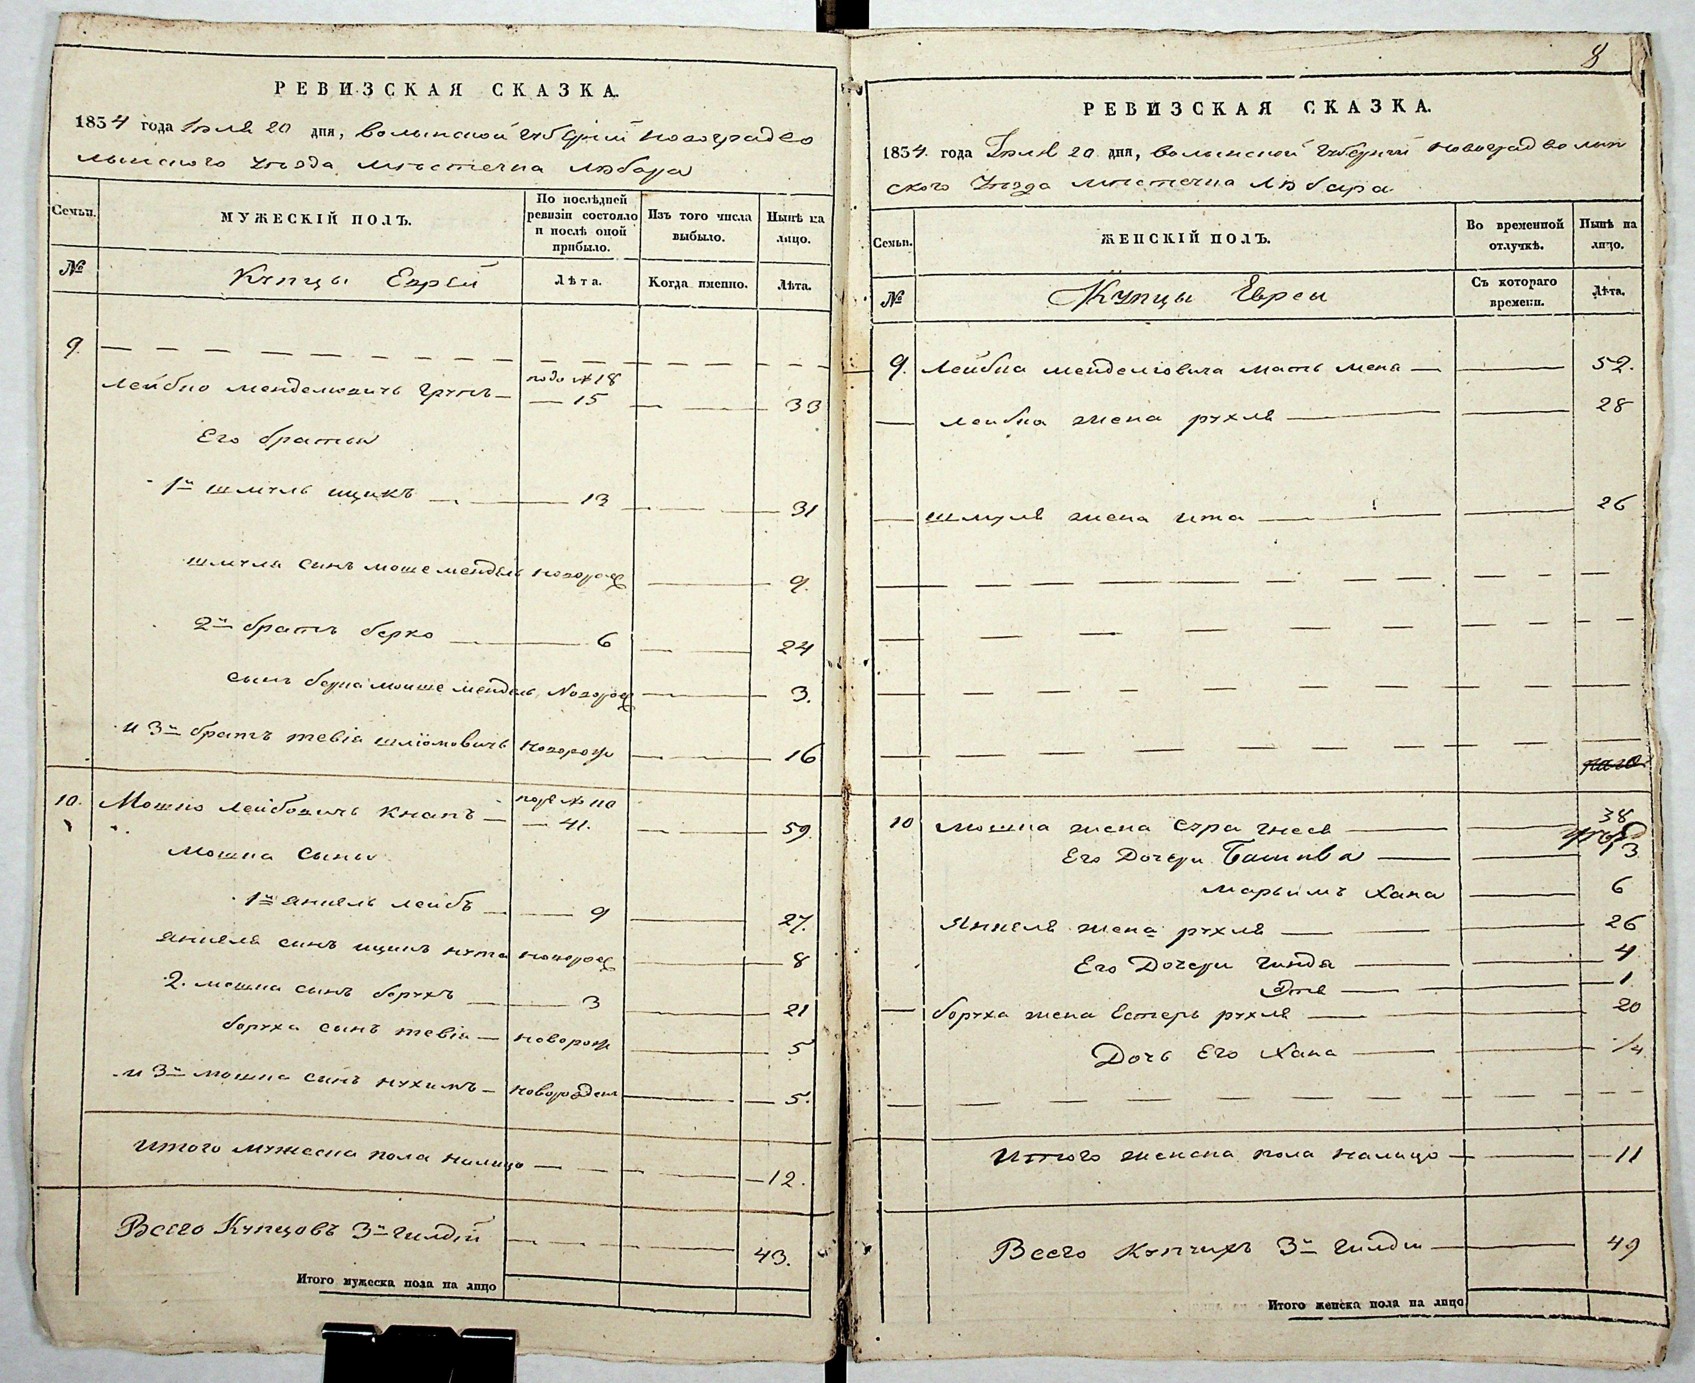 РЕВИЗСКАЯ СКАЗКА.
1834 года Июля 20 дня, Волынской Губерний Новоградво
лынского Уезда местечка Любара
Семьи.
МУЖЕСКІЙ ПОЛЪ.
По послѣдней ревизіи состояло и послѣ оной прибыло.
Изъ того числа выбыло.
Нынѣ на лицо.
№
Купцы Еврей
Лѣта.
Когда именно.
Лѣта.
9
Лейбко Менделювичъ подъ № 18
15 33
Его братья
1й Шмуль Ицикъ 13 31
Шмуля сынъ Моше Мендель новорож 9.
2й братъ Берко 6 24
сынъ Берка Моише Мендель Новорож 3.
и 3й братъ Тевіа Шліомовичъ Новорож 16
10. Мошко Лейбовичъ Кнапъ подъ № 110
41. 59
Мошка Сыны
1й Янкель Лейбъ 9 27.
Янкеля сынъ Ицикъ Нута новорож 8
2. Мошка сынъ Борухъ 3 21
Боруха сынъ Тевіа новорож 5
и 3й Мошка сынъ Нухимъ новорожден 5.
Итого мужеска пола налицо 12.
Всего Купцовъ 3й Гилдій 43.
Итого мужеска пола на лицо
8
РЕВИЗСКАЯ СКАЗКА.
1834. года Июля 20 дня, Волынской Губерний Новоградволын
ского Уезда местечка Любара
Семьи.
ЖЕНСКІЙ ПОЛЪ.
Во временной отлучкѣ.
Нынѣ на лицо.
№
Купцы Евреи
Съ котораго времени.
Лѣта.
9. Лейбка Менделювича мать 52.
Лейбка жена Рухля 28
Шмуля жена Ита 26
10 Мошка жена Сура Гнеся 38
Его Дочери 13
Марьимъ Хана 6
Янкеля жена Рухля 26
Его Дочери Гинда 4
1
Боруха жена Естеръ Рухля 20
Дочь Его Хана 1/4
Итого женска пола налицо 11
Всего Купчихъ 3й Гилдии 49
Итого женска пола на лицо